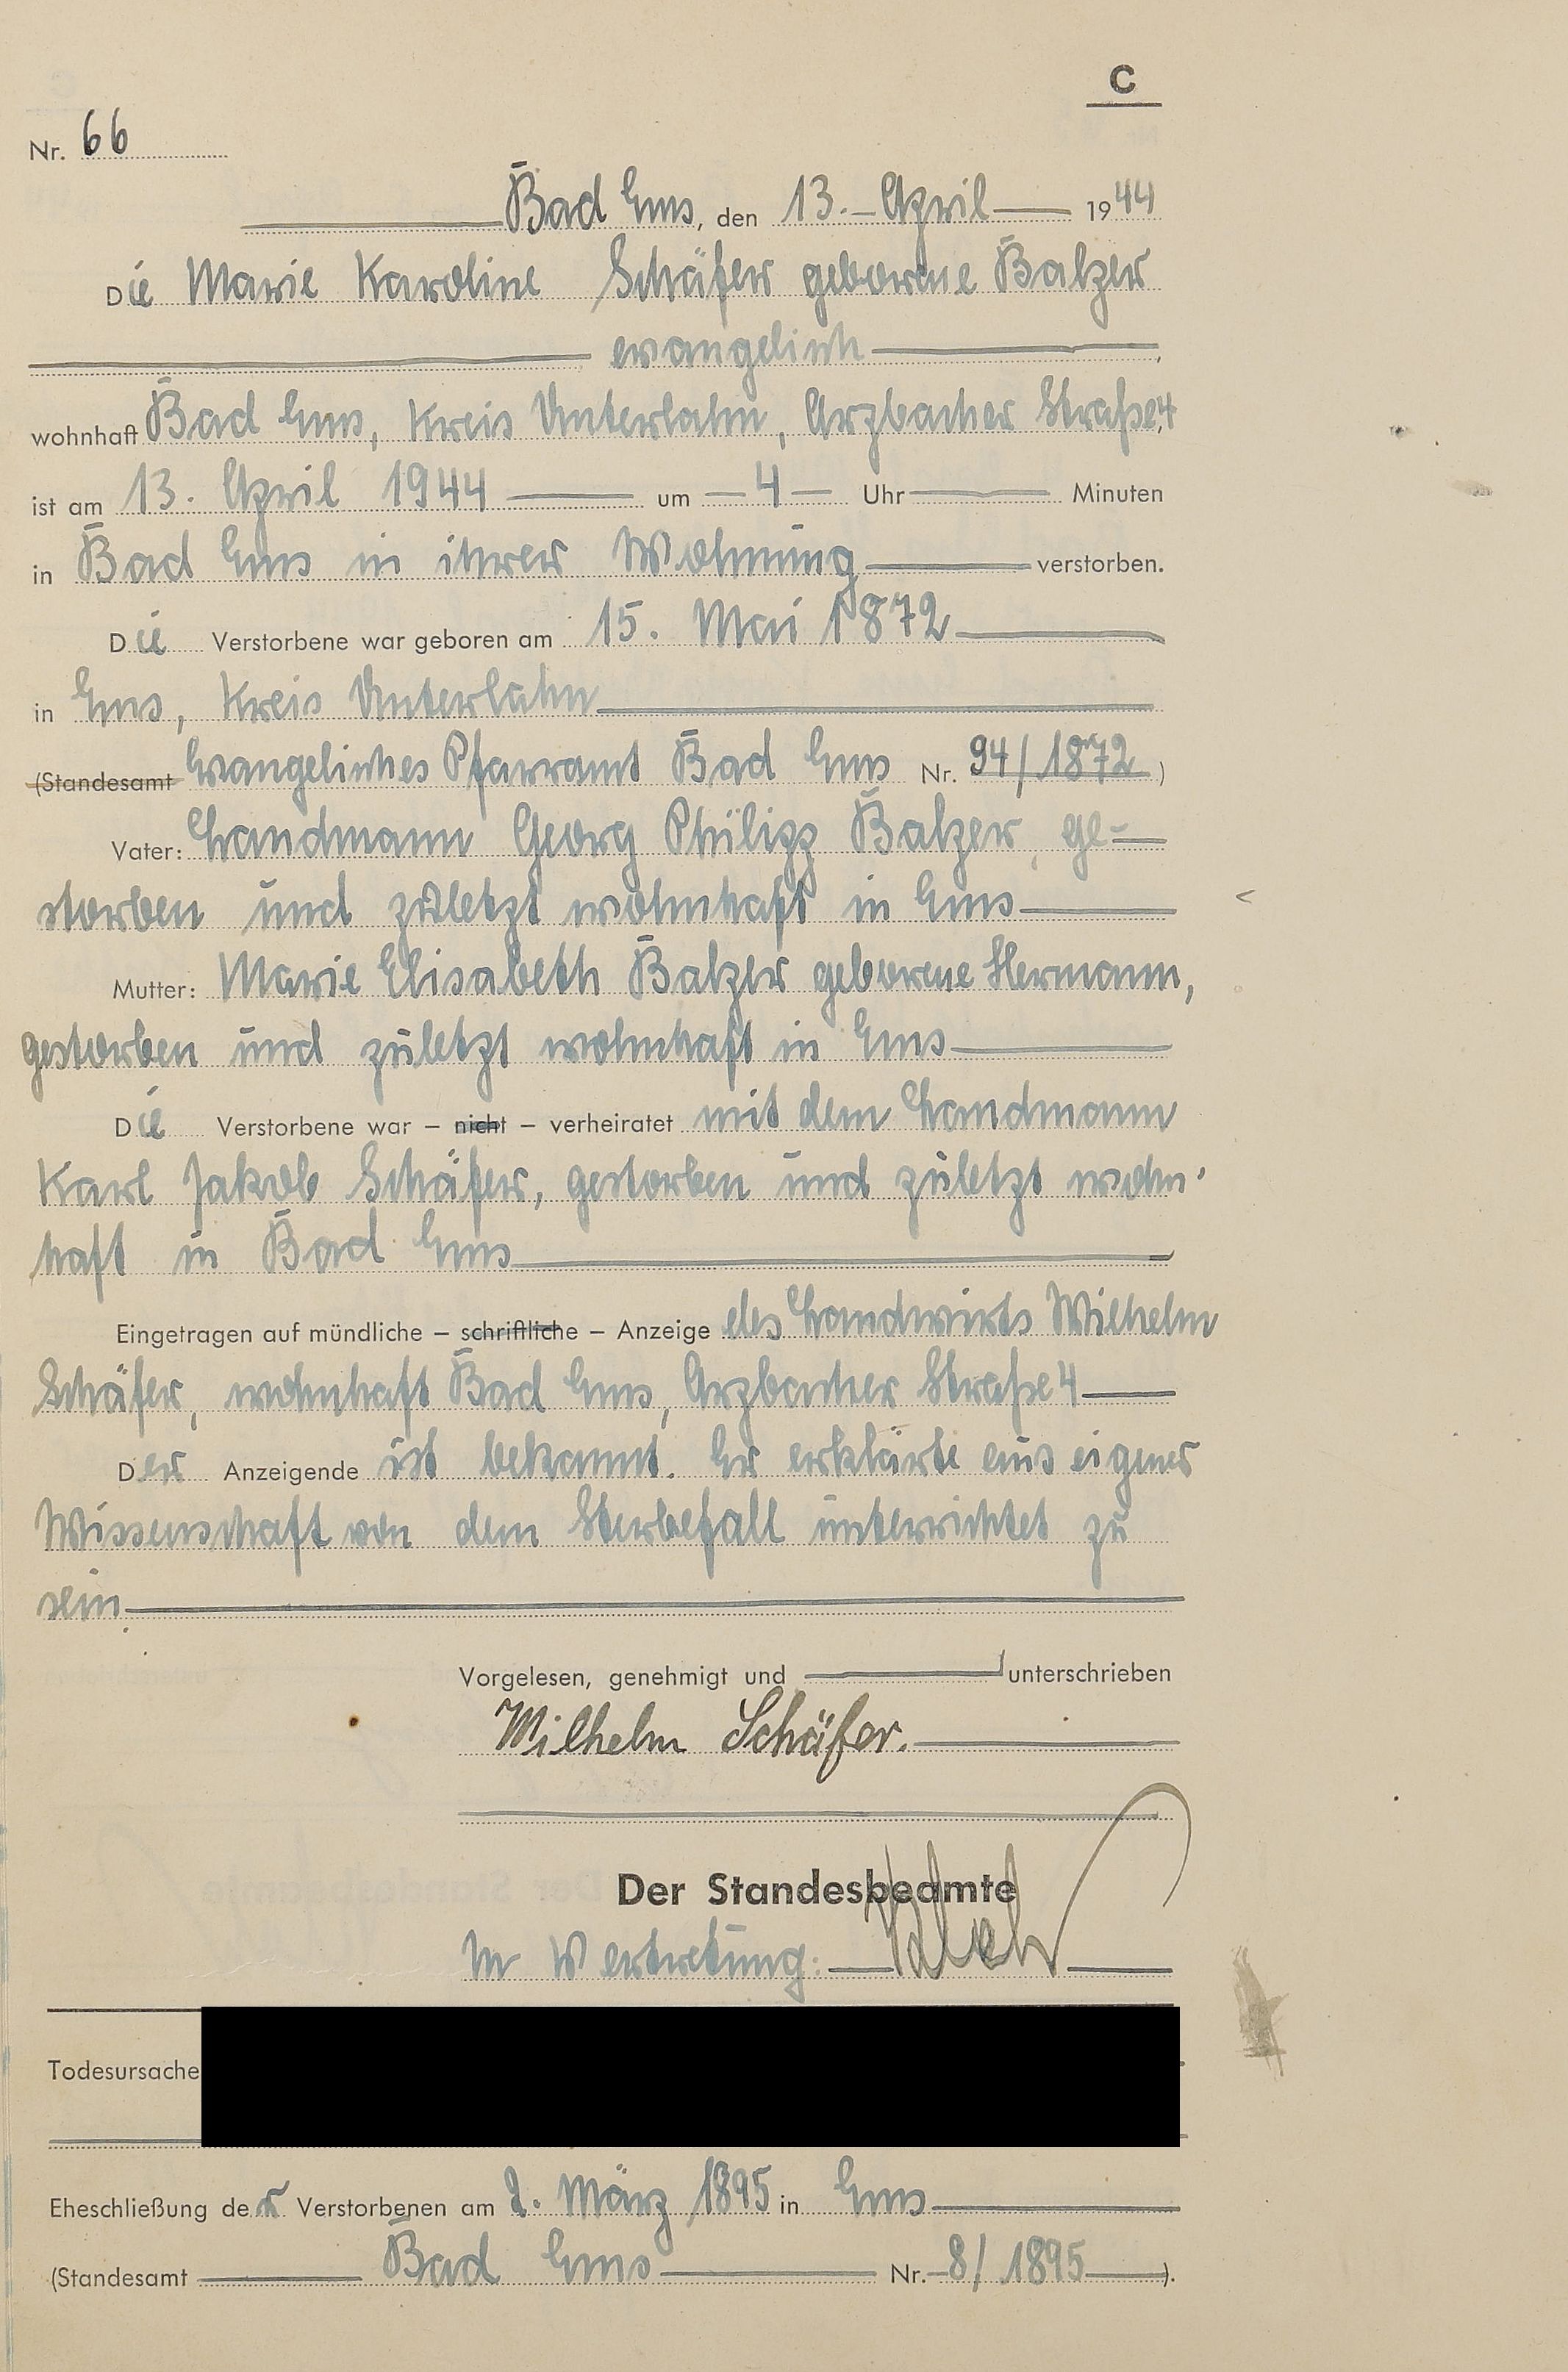 C
Nr. 66
Bad Ems, den 13. April 1944
Die Marie Karoline Schäfer geborene Balzer
evangelisch
wohnhaft Bad Ems, Kreis Unterlahn, Arzbacher Straße 4
ist am 13. April 1944 um 4 Uhr Minuten
in Bad Ems in ihrer Wohnung verstorben.
Die Verstorbene war geboren am 15. Mai 1872
in Ems, Kreis Unterlahn
(Standesamt Evangelisches Pfarramt Bad Ems Nr. 94/1872)
Vater: Landmann Georg Philipp Balzer, ge-
storben und zuletzt wohnhaft in Ems
Mutter: Marie Elisabeth Balzer geborene Hermann,
gestorben und zuletzt wohnhaft in Ems
Die Verstorbene war – nicht – verheiratet mit dem Landmann
Karl Jakob Schäfer, gestorben und zuletzt wohn-
haft in Bad Ems
Eingetragen auf mündliche – schriftliche – Anzeige des Landwirts Wilhelm
Schäfer, wohnhaft Bad Ems, Arzbacher Straße 4
Der Anzeigende ist bekannt. Er erklärte aus eigener
Wissenschaft von dem Sterbefall unterrichtet zu
sein.
Vorgelesen, genehmigt und unterschrieben
Wilhelm Schäfer.
Der Standesbeamte
In Vertretung:
Todesursache
Eheschließung der Verstorbenen am 2. März 1895 in Ems
(Standesamt Bad Ems Nr. 8/1895).